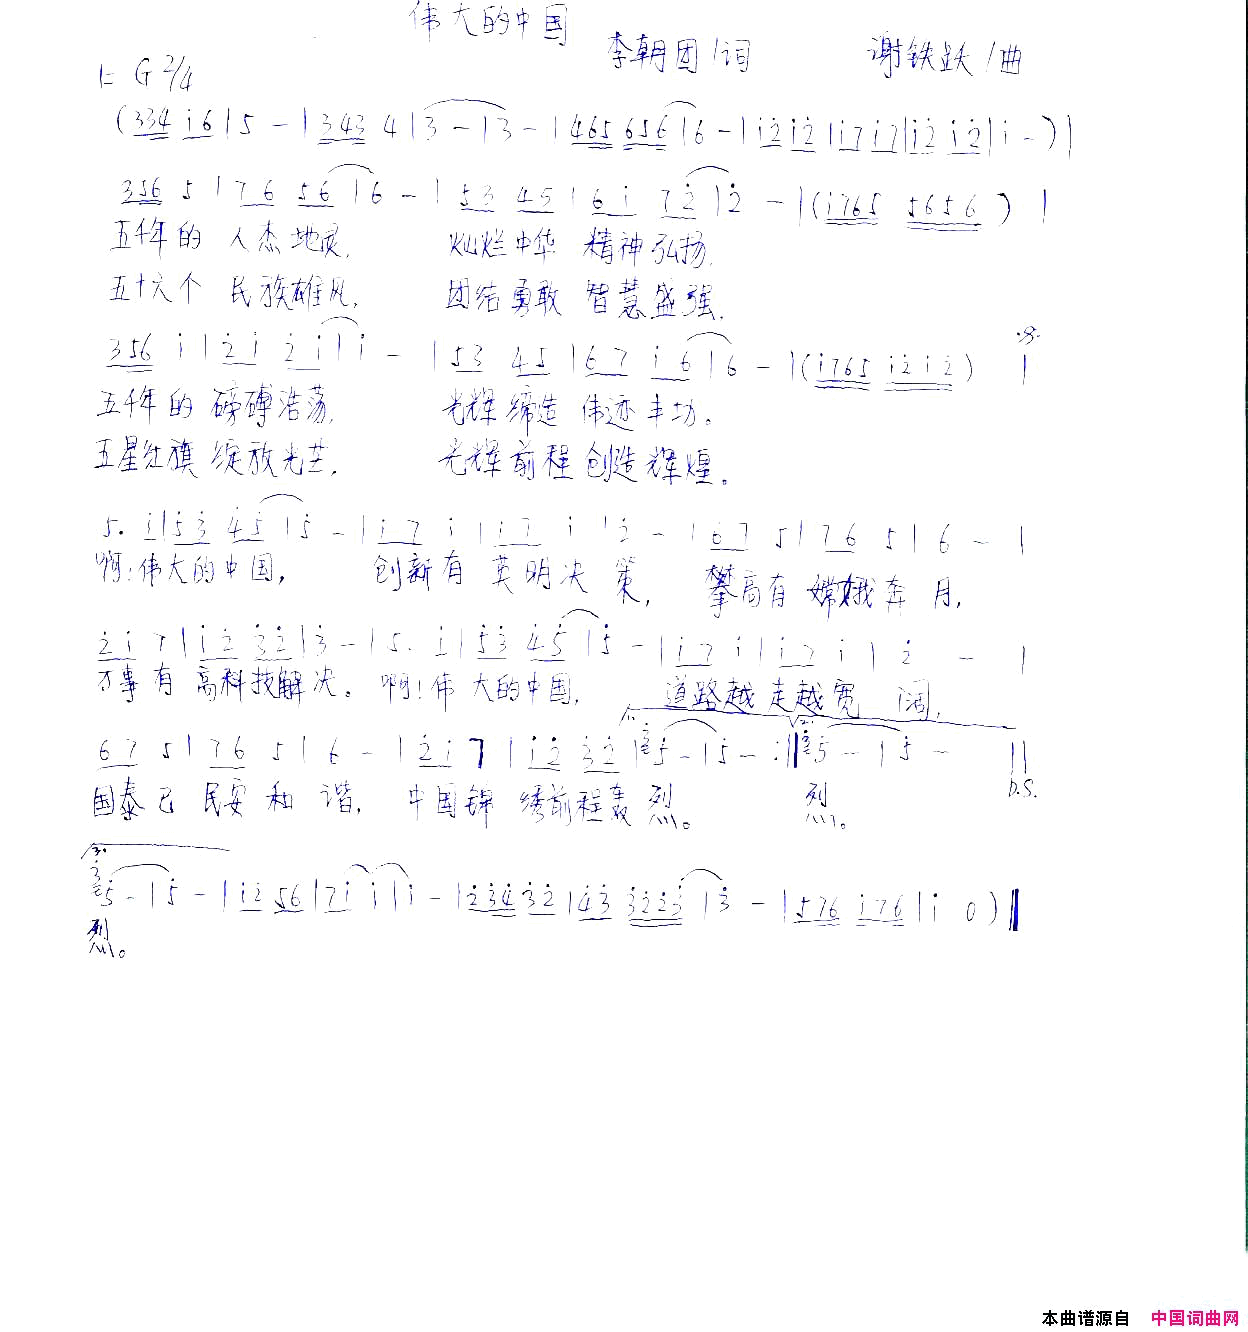 伟大的中国
李朝团/词 谢铁跃/曲
1=G 2/4
(334 i6|5 -|343 4|3 -|3 -|465 656|6 -|i2̇ i2̇|i7 i7|i2̇ i2̇|i -)|
356 5|76 56|6 -|53 45|6i 72̇|2̇ -|(i765 5656)|
五千年的 人杰地灵, 灿烂中华 精神弘扬,
五十六个 民族雄风, 团结勇敢 智慧盛强,
356 i|2̇i 2̇i|i -|53 45|67 i6|6 -|(i765 i2̇i2̇)|
五千年的 磅礴浩荡, 光辉缔造 伟迹丰功。
五星红旗 绽放光芒, 光辉前程 创造辉煌。
5. i|5̇3̇ 4̇5̇|5̇ -|i7 i|i7 i|2̇ -|67 5|76 5|6 -|
啊!伟大的中国, 创新有 英明决 策, 攀高有 嫦娥奔 月,
2̇i 7|i2̇ 3̇2̇|3̇ -|5. i|5̇3̇ 4̇5̇|5̇ -|i7 i|i7 i|2̇ -|
万事有 高科技解决。 啊!伟 大的中国, 道路越 走越宽 阔,
1. 2.
67 5|76 5|6 -|2̇i 7|i2̇ 3̇2̇|5̇ -|5̇ - :‖5̇ -|5̇ - ‖
D.S.
国泰已 民安 和 谐, 中国锦 绣前程轰 烈。 烈。
3.
5̇ -|5̇ -|i2̇ 56|7i i|i -|2̇3̇4̇ 3̇2̇|4̇3̇ 3̇2̇2̇3̇|3̇ -|576 i76|i 0)‖
烈。
本曲谱源自 中国词曲网